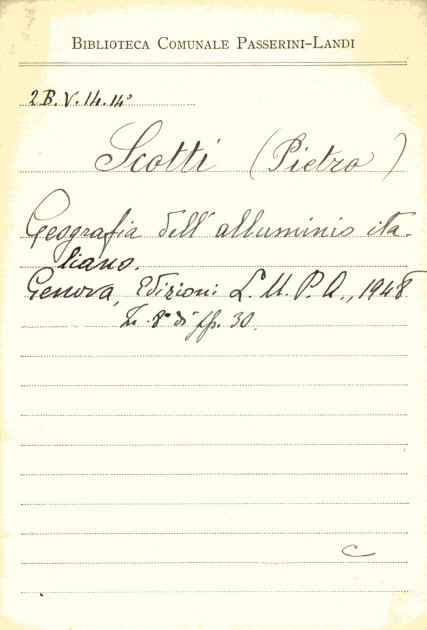 BIBLIOTECA COMUNALE PASSERINI-LANDI
2B.V.14.14°
Scotti (Pietro)
Geografia dell'alluminio ita-
liano.
Genova, Edizioni L.U.P.A., 1948
In 8° di pp. 30.
C